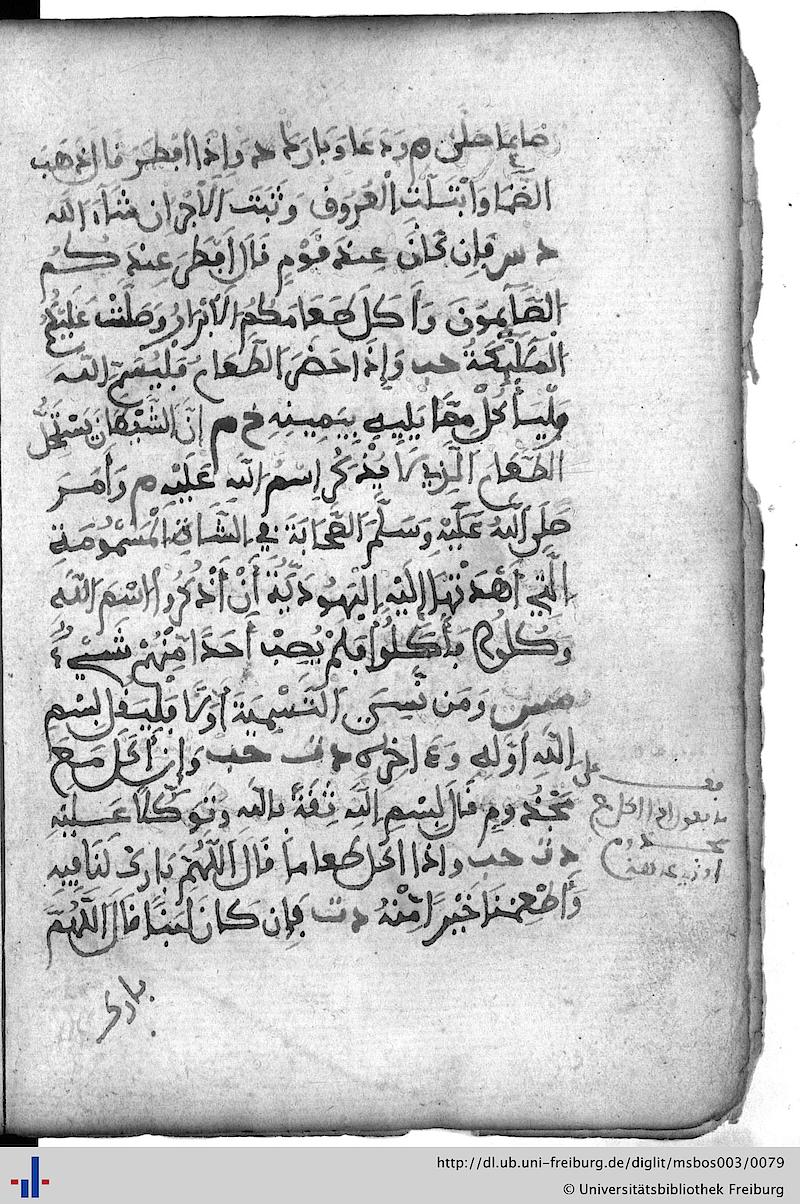 صايما صلى م ودعا وبارك د واذا افطر قال ذهب
الظما وابتلت العروق وثبت الاجر ان شاء الله
د س فإن كان عند قوم قال افطر عندكم
الصايمون وأكل طعامكم الابرار وصلت عليكم
المليكة حب وإذا حضر الطعام فليسم الله
وليأكل مما يليه بيمينه خ م إن الشيطان يستحل
الطعام الذي لا يذكر اسم الله عليه م وأمر
صلى الله عليه وسلم الصحابة في الشاة المسمومة
التي أهدتها إليه اليهودية أن أذكروا اسم الله
وكلوا فأكلوا فلم يصب أحدا منهم شيء
مس ومن نسي التسمية أولا فليقل بسم
الله أوله وءاخره د ت حب وإن أكل مع
مجذوم قال بسم الله ثقة بالله وتوكلا عليه
د ت حب واذا اكل طعاما قال اللهم بارك لنا فيه
وأطعمنا خيرا منه د ت فإن كان لبنا قال اللهم
بارك
http://dl.ub.uni-freiburg.de/diglit/msbos003/0079
© Universitätsbibliothek Freiburg